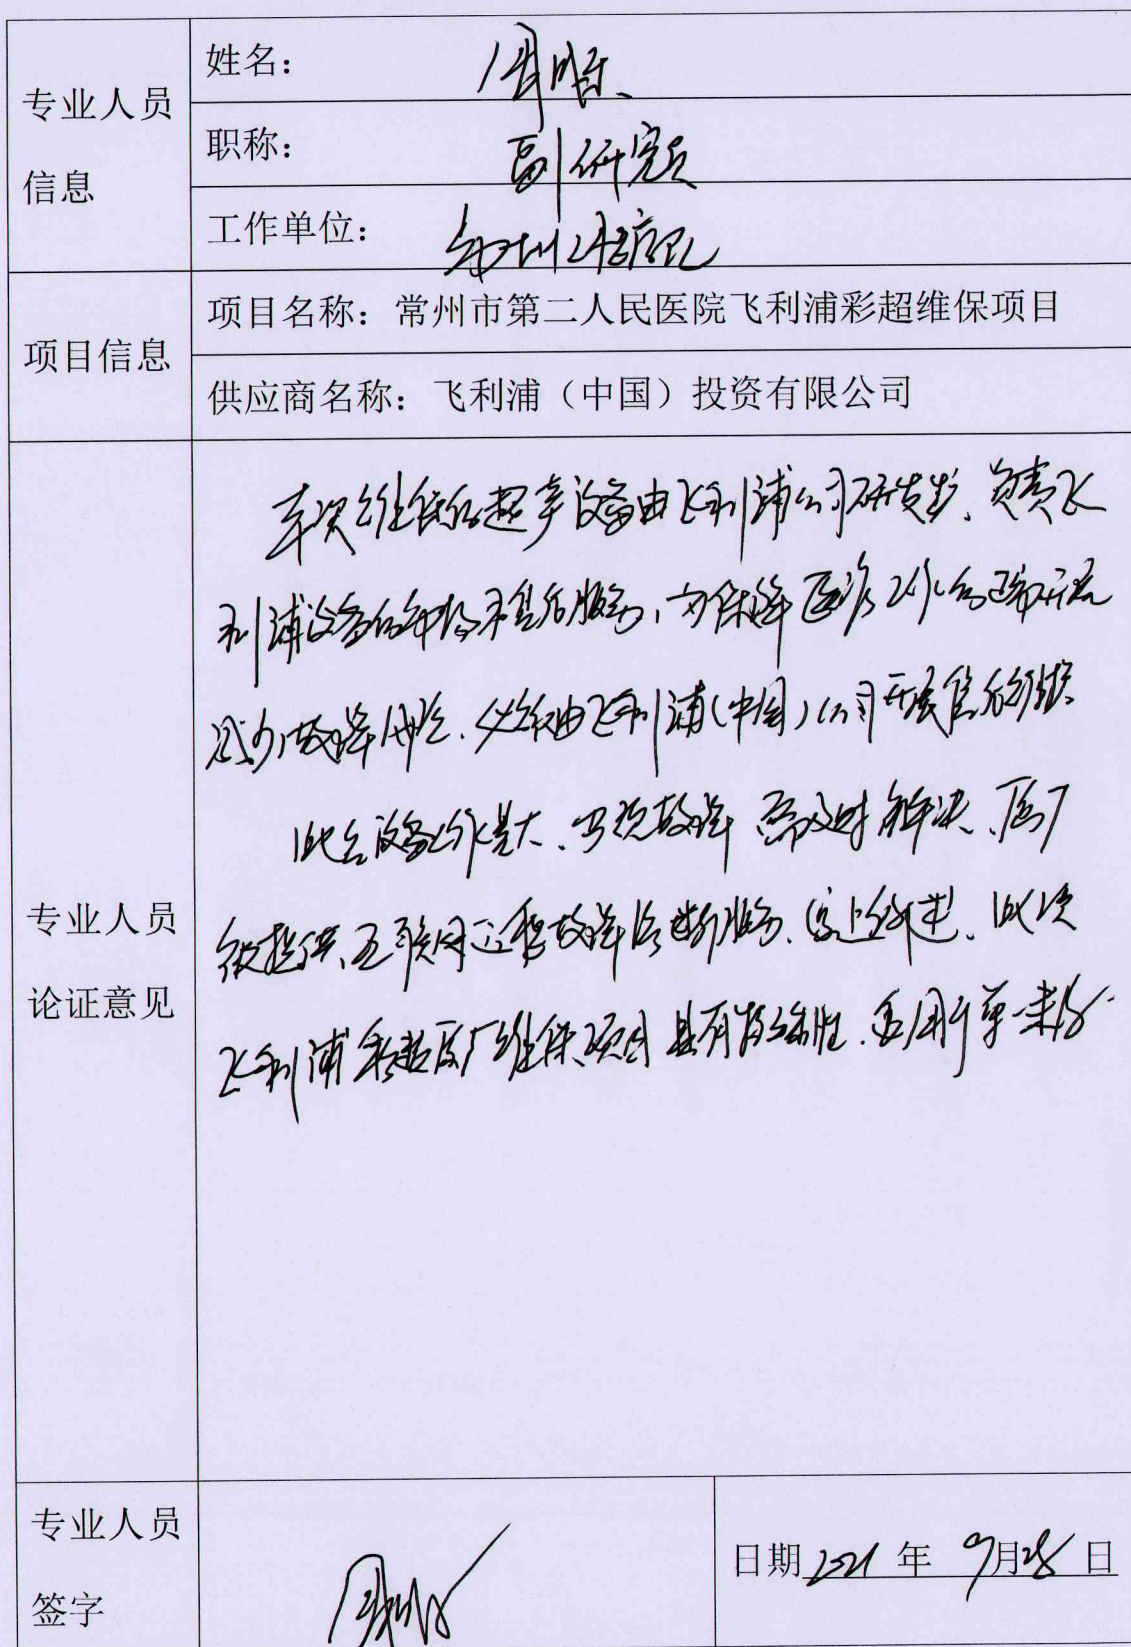 专业人员
信息
姓名：周
职称：副研究员
工作单位：常州
项目信息
项目名称：常州市第二人民医院飞利浦彩超维保项目
供应商名称：飞利浦（中国）投资有限公司
专业人员
论证意见
本次维保的超声设备由飞利浦公司研发，负责飞
利浦设备的和售后服务，为保障医疗工作的正常开展
减少故障，必须由飞利浦（中国）公司开展售后维护
此台设备工作量大，出现故障需及时解决，原厂
能提供互联网远程故障诊断服务，综上所述，此次
飞利浦彩超原厂维保项目具有特殊性，适用于单一来源
专业人员
签字
周
日期2021年 9月28日